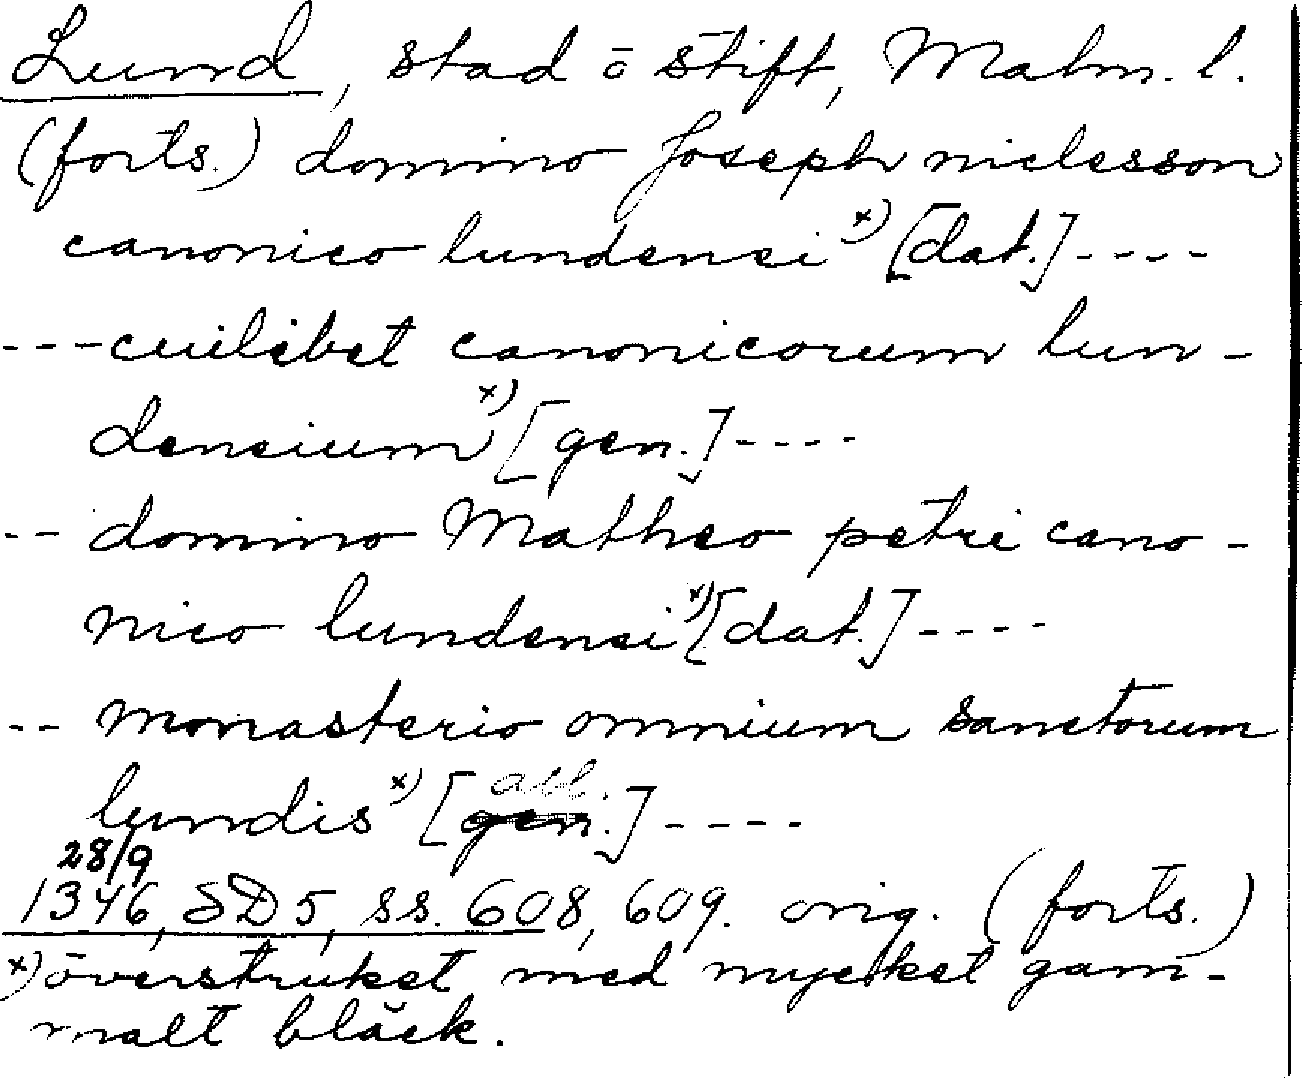 Lund, stad o stift, Malm. l.
(forts.) domino Joseph niclesson
canonico lundensi x) [dat.] ----
--- cuilibet canonicorum lun-
densium x) [gen.] ----
-- domino Matheo petri cano-
nico lundensi x) [dat.] ----
-- monasterio omnium sanctorum
abl.
lundis x) [gen.] ----
28/9
1346, SD 5, ss. 608, 609. orig. (forts.)
x) överstruket med mycket gam-
malt bläck.